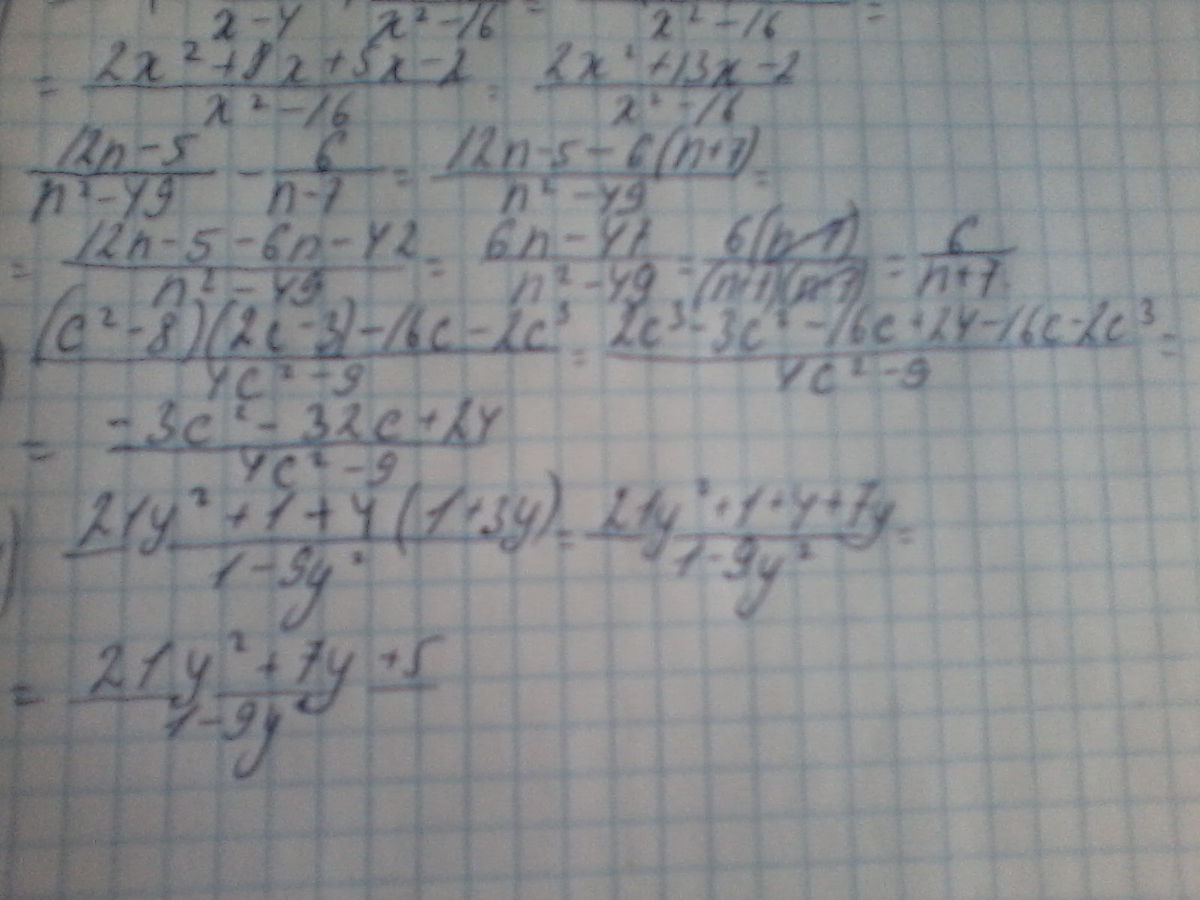 x-4 x²-16 = x²-16 =
= (2x²+8x+5x-2)/(x²-16) = (2x²+13x-2)/(x²-16)
(12n-5)/(n²-49) - 6/(n-7) = (12n-5-6(n+7))/(n²-49) =
= (12n-5-6n-42)/(n²-49) = (6n-47)/(n²-49) = (6(n-7))/((n+7)(n-7)) = 6/(n+7)
((c²-8)(2c-3)-16c-2c³)/(4c²-9) = (2c³-3c²-16c+24-16c-2c³)/(4c²-9) =
= (-3c²-32c+24)/(4c²-9)
(21y²+1+4(1+3y))/(1-9y²) = (21y²+1+4+7y)/(1-9y²) =
= (21y²+7y+5)/(1-9y²)